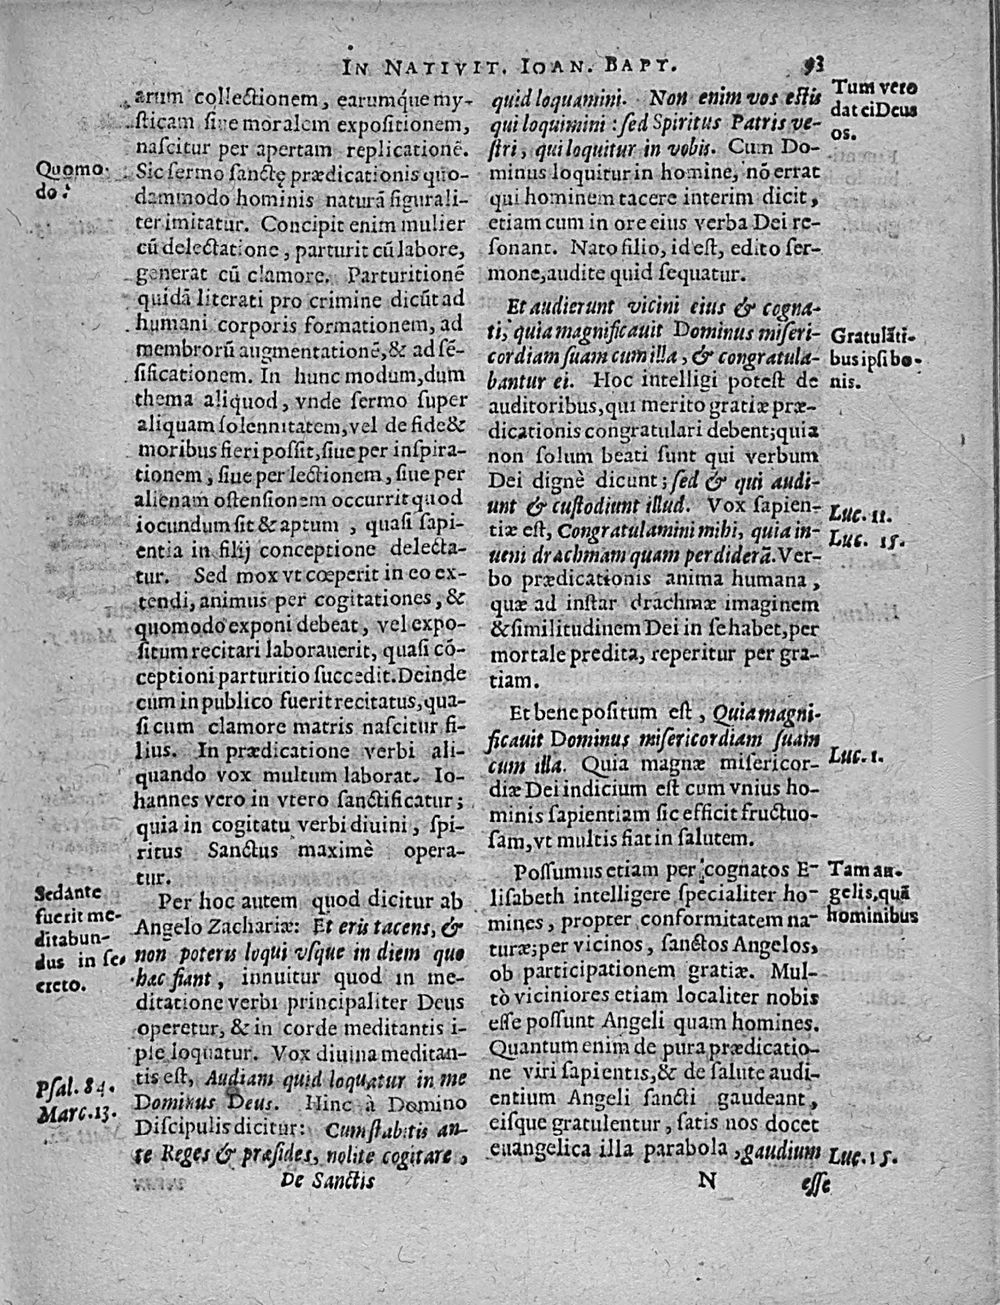 IN NATIVIT. IOAN. BAPT. 93
arum collectionem, earumq́ue my-
ſticam ſiue moralem expoſitionem,
naſcitur per apertam replicationē.
Sic ſermo ſanctę prædicationis quo-
dammodo hominis naturā figurali-
ter imitatur. Concipit enim mulier
cū delectatione, parturit cū labore,
generat cū clamore. Parturitionē
quidā literati pro crimine dicūt ad
humani corporis formationem, ad
membrorū augmentationē,& ad sē-
ſificationem. In hunc modum, dum
thema aliquod, vnde ſermo ſuper
aliquam ſolennitatem, vel de fide &
moribus fieri poſſit, ſiue per inſpira-
tionem, ſiue per lectionem, ſiue per
alienam oſtenſionem occurrit quod
iocundum ſit & aptum, quaſi ſapi-
entia in filij conceptione delecta-
tur. Sed mox vt cœperit in eo ex-
tendi, animus per cogitationes, &
quomodo exponi debeat, vel expo-
ſitum recitari laborauerit, quaſi cō-
ceptioni parturitio ſuccedit. Deinde
cum in publico fuerit recitatus, qua-
ſi cum clamore matris naſcitur fi-
lius. In prædicatione verbi ali-
quando vox multum laborat. Io-
hannes vero in vtero ſanctificatur;
quia in cogitatu verbi diuini, ſpi-
ritus Sanctus maximè opera-
tur.
Per hoc autem quod dicitur ab
Angelo Zachariæ: Et eris tacens, &
non poteris loqui vſque in diem quo
hæc fiant, innuitur quod in me-
ditatione verbi principaliter Deus
operetur, & in corde meditantis i-
pſe loquatur. Vox diuina meditan-
tis eſt, Audiam quid loquatur in me
Dominus Deus. Hinc à Domino
Diſcipulis dicitur: Cum ſtabitis an-
te Reges & præſides, nolite cogitare,
De Sanctis
Quomo-
do?
Sedante
fuerit me-
ditabun-
dus in ſe-
creto.
Pſal. 84.
Marc. 13.
quid loquamini. Non enim vos eſtis
qui loquimini: ſed Spiritus Patris ve-
ſtri, qui loquitur in vobis. Cum Do-
minus loquitur in homine, nō errat
qui hominem tacere interim dicit,
etiam cum in ore eius verba Dei re-
ſonant. Nato filio, id eſt, edito ſer-
mone, audite quid ſequatur.
Et audierunt vicini eius & cogna-
ti, quia magnificauit Dominus miſeri-
cordiam ſuam cum illa, & congratula-
bantur ei. Hoc intelligi poteſt de
auditoribus, qui merito gratiæ præ-
dicationis congratulari debent; quia
non ſolum beati ſunt qui verbum
Dei dignè dicunt; ſed & qui audi-
unt & cuſtodiunt illud. Vox ſapien-
tiæ eſt, Congratulamini mihi, quia in-
ueni drachmam quam perdiderā. Ver-
bo prædicationis anima humana,
quæ ad inſtar drachmæ imaginem
& ſimilitudinem Dei in ſe habet, per
mortale predita, reperitur per gra-
tiam.
Et bene poſitum eſt, Quia magni-
ficauit Dominus miſericordiam ſuam
cum illa. Quia magnæ miſericor-
diæ Dei indicium eſt cum vnius ho-
minis ſapientiam ſic efficit fructuo-
ſam, vt multis fiat in ſalutem.
Poſſumus etiam per cognatos E-
liſabeth intelligere ſpecialiter ho-
mines, propter conformitatem na-
turæ; per vicinos, ſanctos Angelos,
ob participationem gratiæ. Mul-
tò viciniores etiam localiter nobis
eſſe poſſunt Angeli quam homines.
Quantum enim de pura prædicatio-
ne viri ſapientis, & de ſalute audi-
entium Angeli ſancti gaudeant,
eiſque gratulentur, ſatis nos docet
euangelica illa parabola, gaudium
N eſſe
Tum vero
dat ei Deus
os.
Gratulāti-
bus ipſi bo-
nis.
Luc. 11.
Luc. 15.
Luc. 1.
Tam an-
gelis, quā
hominibus
Luc. 15.